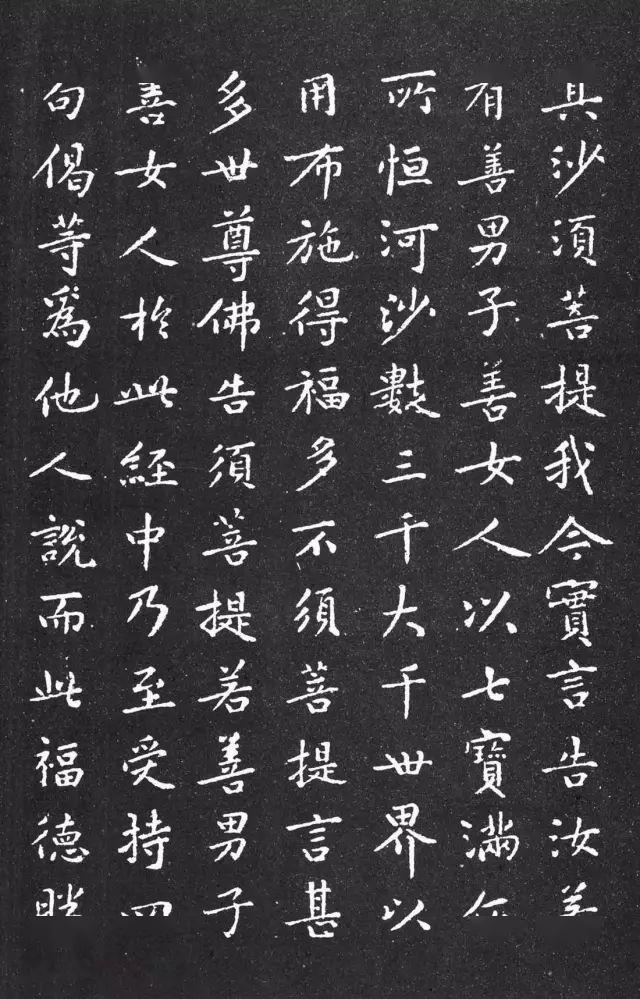 其沙須菩提我今實言告汝若
有善男子善女人以七寶滿尔
所恒河沙數三千大千世界以
用布施得福多不須菩提言甚
多世尊佛告須菩提若善男子
善女人於此經中乃至受持四
句偈等爲他人說而此福德勝